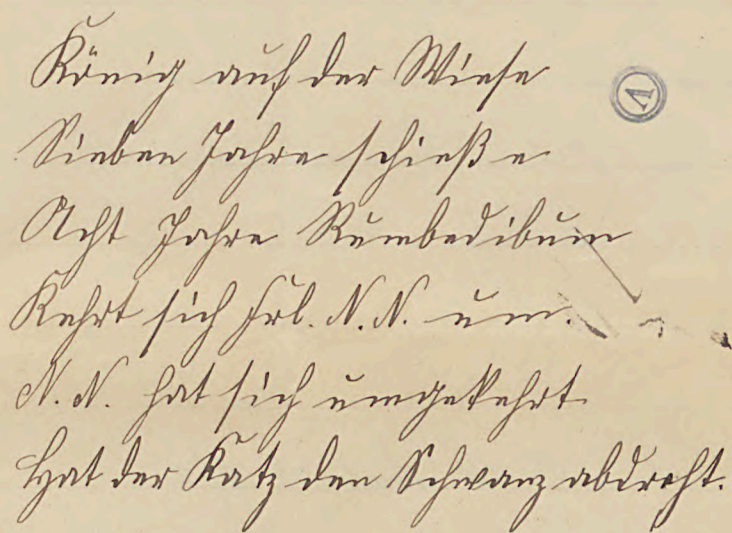 König auf der Wiese
Sieben Jahre schieß e
Acht Jahre Rumbedibum
Kehrt sich Frl. N. N. um.
N. N. hat sich umgekehrt
Hat der Katz den Schwanz abdreht.